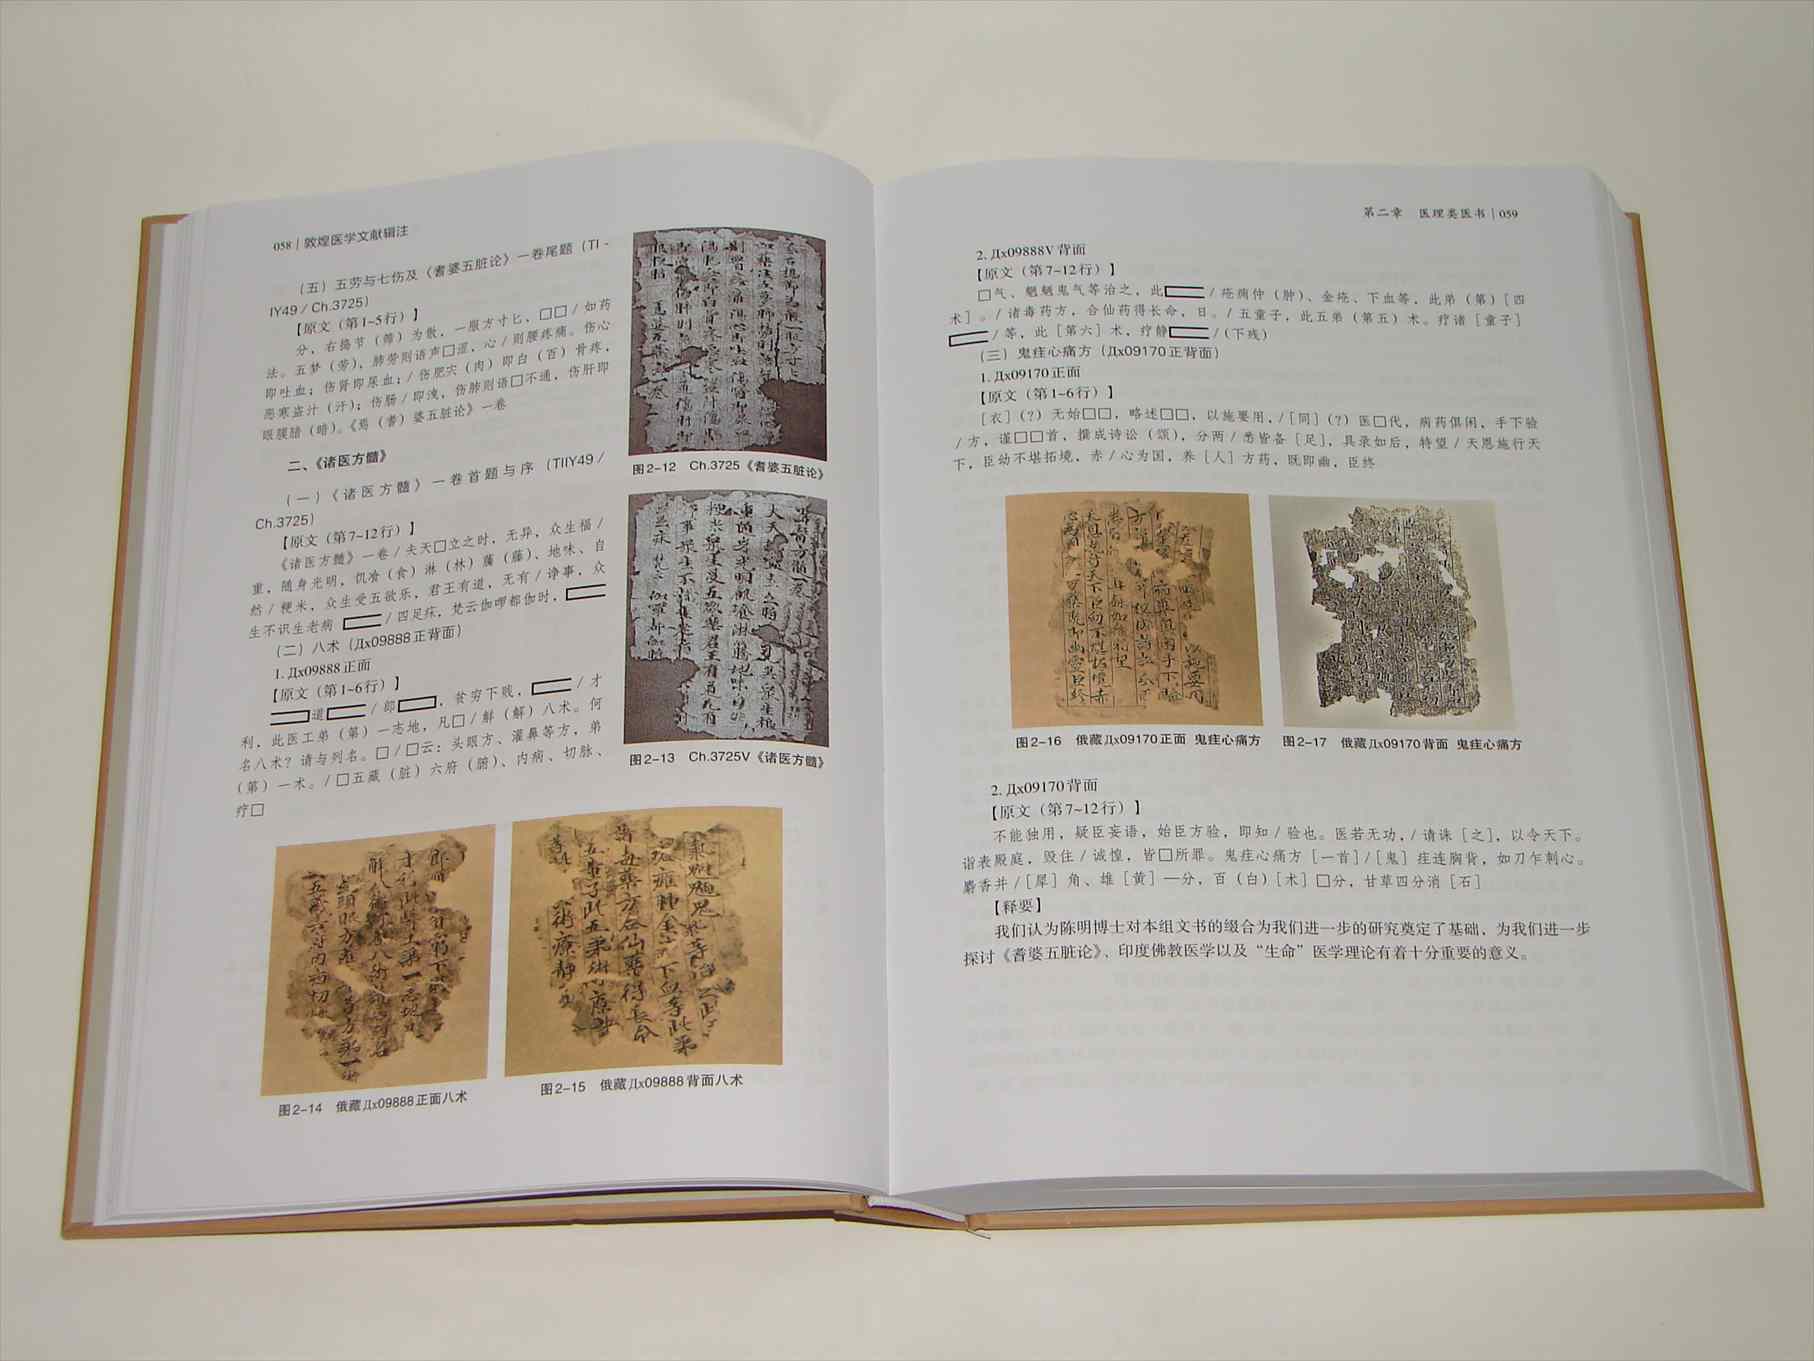 058 | 敦煌医学文献辑注
（五）五劳与七伤及《耆婆五脏论》一卷尾题（TI-
IY49 / Ch.3725）
【原文（第1~5行）】
分，右捣节（筛）为散，一服方寸匕，□□ / 如药
法。五梦（劳），肺劳则语声□涩，心 / 则腰疼痛。伤心
即吐血；伤肾即尿血；/ 伤肥宍（肉）即白（百）骨疼，
恶寒盗汁（汗）；伤肠 / 即洩，伤肺则语□不通，伤肝即
眼膜腤（暗）。《耆（耆）婆五脏论》一卷
二、《诸医方髓》
（一）《诸医方髓》一卷首题与序（TIIY49 /
Ch.3725）
【原文（第7~12行）】
《诸医方髓》一卷 / 夫天□立之时，无异，众生福 /
重，随身光明，飢飡（食）淋（林）藤（藤）、地味、自
然 / 粳米，众生受五欲乐，君王有道，无有 / 诤事，众
生不识生老病 / 四足床，梵云伽啰都伽时，
（二）八术（Дx09888正背面）
1. Дx09888正面
【原文（第1~6行）】
道 / 郎，贫穷下贱， / 才
利，此医工弟（第）一志地，凡□ / 觧（解）八术。何
名八术？请与列名。□ / □云：头眼方、灌鼻等方，弟
（第）一术。/ □五藏（脏）六府（腑）、内病、切脉、
疗□
图2-12 Ch.3725《耆婆五脏论》
图2-13 Ch.3725V《诸医方髓》
图2-14 俄藏Дx09888正面八术
图2-15 俄藏Дx09888背面八术
第二章 医理类医书 | 059
2. Дx09888V背面
【原文（第7~12行）】
□气、魍魉鬼气等治之，此 / 疮痈仲（肿）、金疮、下血等，此弟（第）［四
术］。/ 诸毒药方，合仙药得长命，日。/ 五童子，此五弟（第五）术。疗诸［童子］
/ 等，此［第六］术，疗静 /（下残）
（三）鬼疰心痛方（Дx09170正背面）
1. Дx09170正面
【原文（第1~6行）】
［衣］（？）无始□□，略述□□，以施要用，/［同］（？）医□代，病药俱闲，手下验
/ 方，谨□□首，撰成诗讼（颂），分两 / 悉皆备［足］，具录如后，特望 / 天恩施行天
下，臣幼不堪拓境，赤 / 心为国，养［人］方药，既即幽，臣终
图2-16 俄藏Дx09170正面 鬼疰心痛方
图2-17 俄藏Дx09170背面 鬼疰心痛方
2. Дx09170背面
【原文（第7~12行）】
不能独用，疑臣妄语，始臣方验，即知 / 验也。医若无功，/ 请诛［之］，以令天下。
诣表殿庭，毁住 / 诚惶，皆□所罪。鬼疰心痛方［一首］/［鬼］疰连胸背，如刀乍刺心。
麝香并 /［犀］角、雄［黄］一分，百（白）［术］□分，甘草四分消［石］
【释要】
我们认为陈明博士对本组文书的缀合为我们进一步的研究奠定了基础，为我们进一步
探讨《耆婆五脏论》、印度佛教医学以及“生命”医学理论有着十分重要的意义。